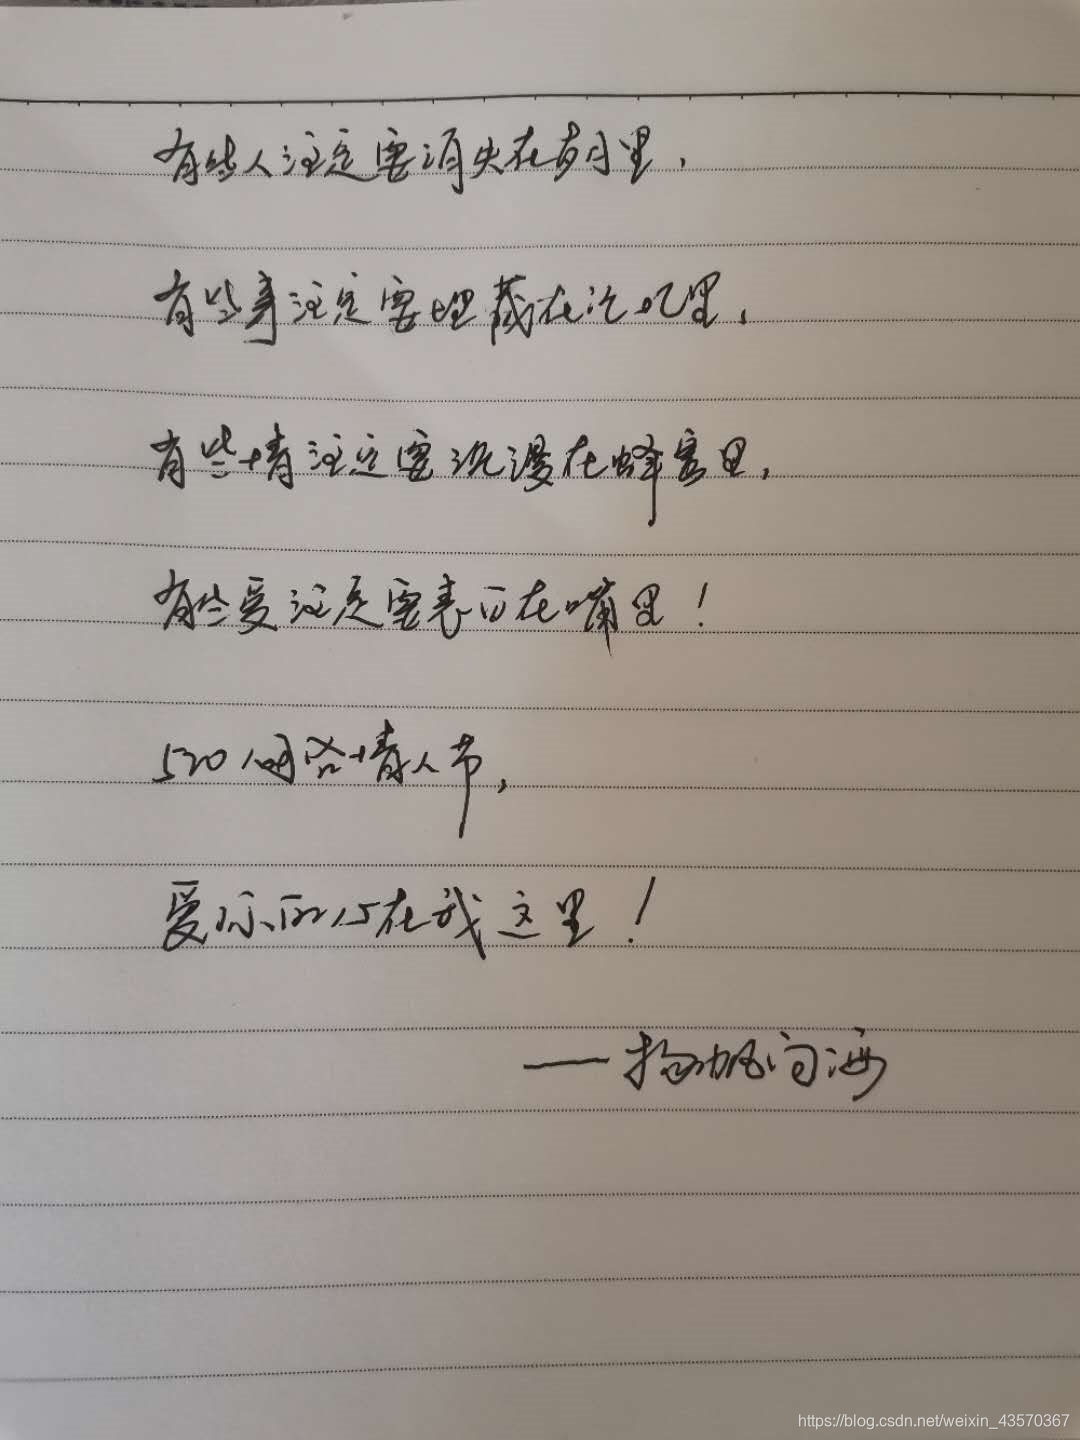 有些人注定要消失在岁月里，
有些事注定要埋藏在记忆里，
有些情注定要沉浸在蜂蜜里，
有些爱注定要表白在嘴里！
520网络情人节，
爱你的心在我这里！
——扬帆向海
https://blog.csdn.net/weixin_43570367